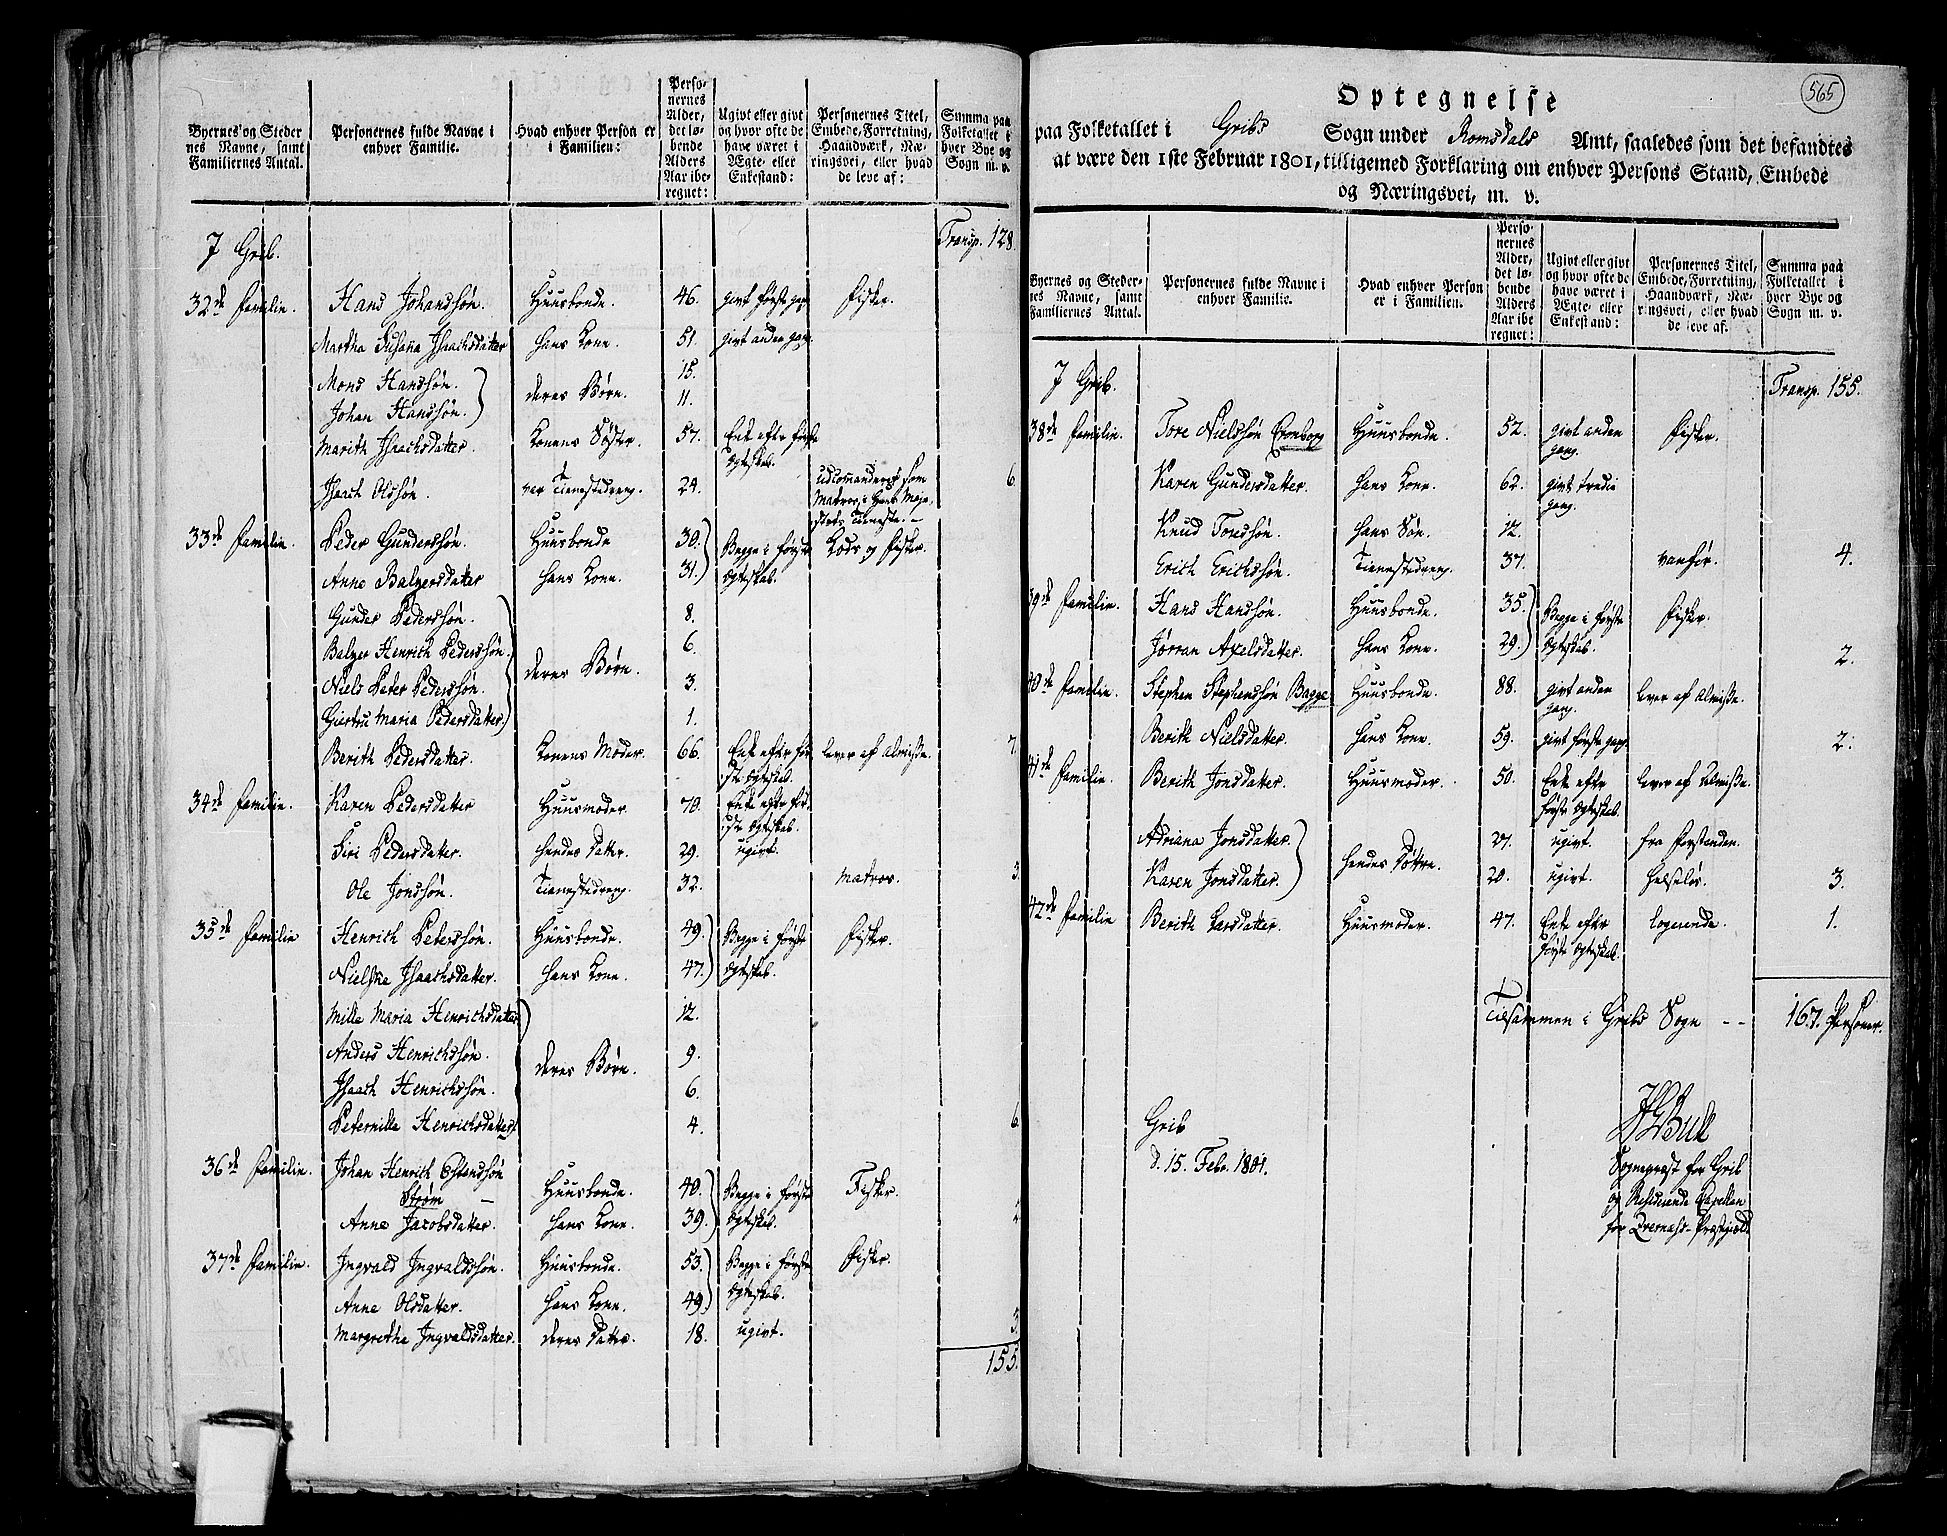 Byernes og Steder
nes Navne, samt
Familiernes Antal.
Personernes fulde Navne i
enhver Familie.
Hvad enhver Person er
i Familien:
Perso-
nernes
Alder,
det lø-
bende
Alders
Aar ibe-
regnet:
Ugivt eller givt
og hvor ofte de
have været i
Ægte- eller
Enkestand:
Personernes Titel,
Embede, Forretning,
Haandværk, Næ-
ringsvei, eller hvad
de leve af:
Summa paa
Folketallet i
hver Bye og
Sogn m. v.
7 Grib. Transp. 128.
32de Familie. Hans Johansøn. Huusbonde. 46. givt første gang. Fisker.
Martha Susana Isaachsdatter hans Kone. 51. givt anden gang.
Mons Hanssøn. 15.
deres Børn.
Johan Hanssøn. 11.
Marith Isaachsdatter. Konens Søster. 57. Enke efter første
Ægteskab.
Isaach Olssøn. Tienestedreng. 24. udcomanderet som
Matros i Hans Maje-
stets Tieneste. 6.
33de Familie. Peder Gunderssøn. Huusbonde 30. Begge i første Lods og Fisker.
Anne Balzersdatter hans Kone. 31. Ægteskab.
Gunder Pederssøn. 8.
Balzer Henrich Pederssøn. 6.
deres Børn.
Niels Peter Pederssøn. 3.
Giertru Maria Pedersdatter. 1.
Berith Pedersdatter. Konens Moder. 66. Enke efter før-
ste Ægteskab. lever af Almisse. 7.
34de Familie. Karen Pedersdatter Huusmoder. 70. Enke efter før-
ste Ægteskab.
Siri Pedersdatter. hendes Datter. 29. ugivt.
Ole Jonssøn. Tienestedreng. 32. Matros. 3.
35de Familie Henrich Peterssøn. Huusbonde. 49. Begge i første Fisker.
Nielske Isaachsdatter. hans Kone. 47. Ægteskab.
Mille Maria Henrichsdatter 12.
Anders Henrichssøn. 9.
deres Børn.
Isaach Henrichssøn. 6.
Peternille Henrichsdatter. 4. 6.
36de Familie. Johan Henrich Estenssøn
Strøm Huusbonde. 40. Begge i første Fisker.
Anne Jacobsdatter. hans Kone. 39. Ægteskab. 2.
37de Familie. Ingvald Ingvaldssøn. Huusbonde. 53. Begge i første Fisker.
Anne Olsdatter. hans Kone. 49. Ægteskab.
Margrethe Ingvaldsdatter. deres Datter. 18. ugivt. 3.
155.
565
Optegnelse
paa Folketallet i Gribs Sogn under Romsdals Amt, saaledes som det befandtes
at være den 1ste Februar 1801, tilligemed Forklaring om enhver Persons Stand, Embede
og Næringsvei, m. v.
Byernes og Steder-
nes Navne, samt
Familiernes Antal.
Personernes fulde Navne i
enhver Familie.
Hvad enhver Person
er i Familien.
Perso-
nernes
Alder,
det lø-
bende
Alders
Aar ibe-
regnet:
Ugivt eller givt
og hvor ofte de
have været i
Ægte- eller
Enkestand:
Personernes Titel,
Embede, Forretning,
Haandværk, Næ-
ringsvei, eller hvad
de leve af.
Summa paa
Folketallet i
hver Bye og
Sogn m. v.
7 Grib. Transp. 155.
38de Familie. Tore Nielssøn Cronborg Huusbonde. 52. givt anden
gang. Fisker.
Karen Gundersdatter. hans Kone. 62. givt tredie
gang.
Knud Toressøn. hans Søn. 12.
Erich Erichssøn. Tienestedreng. 37. vanfør. 4.
39de Familie. Hans Hanssøn. Huusbonde. 35. Begge i første Fisker.
Jørran Axelsdatter. hans Kone. 29. Ægteskab. 2.
40de Familie. Stephen Stephenssøn Bagge Huusbonde. 88. givt anden
gang. lever af Almisse.
Berith Nielsdatter. hans Kone. 59. givt første gang. 2.
41de Familie. Berith Jonsdatter. Huusmoder. 50. Enke efter
første Ægteskab. lever af Almisse.
Adriana Jonsdatter. 27. ugivt. fra Forstanden.
hendes Døttre.
Karen Jonsdatter. 20. ugivt. helseløs. 3.
42de Familie Berith Larsdatter. Huusmoder. 47. Enke efter
første Ægteskab. logerende. 1.
Tilsammen i Gribs Sogn -- 167. Personer.
Grib
d. 15. Febr. 1801.
Sognepræst for Grib
og Residerende Capellan
for Qvernæs-Præstegield